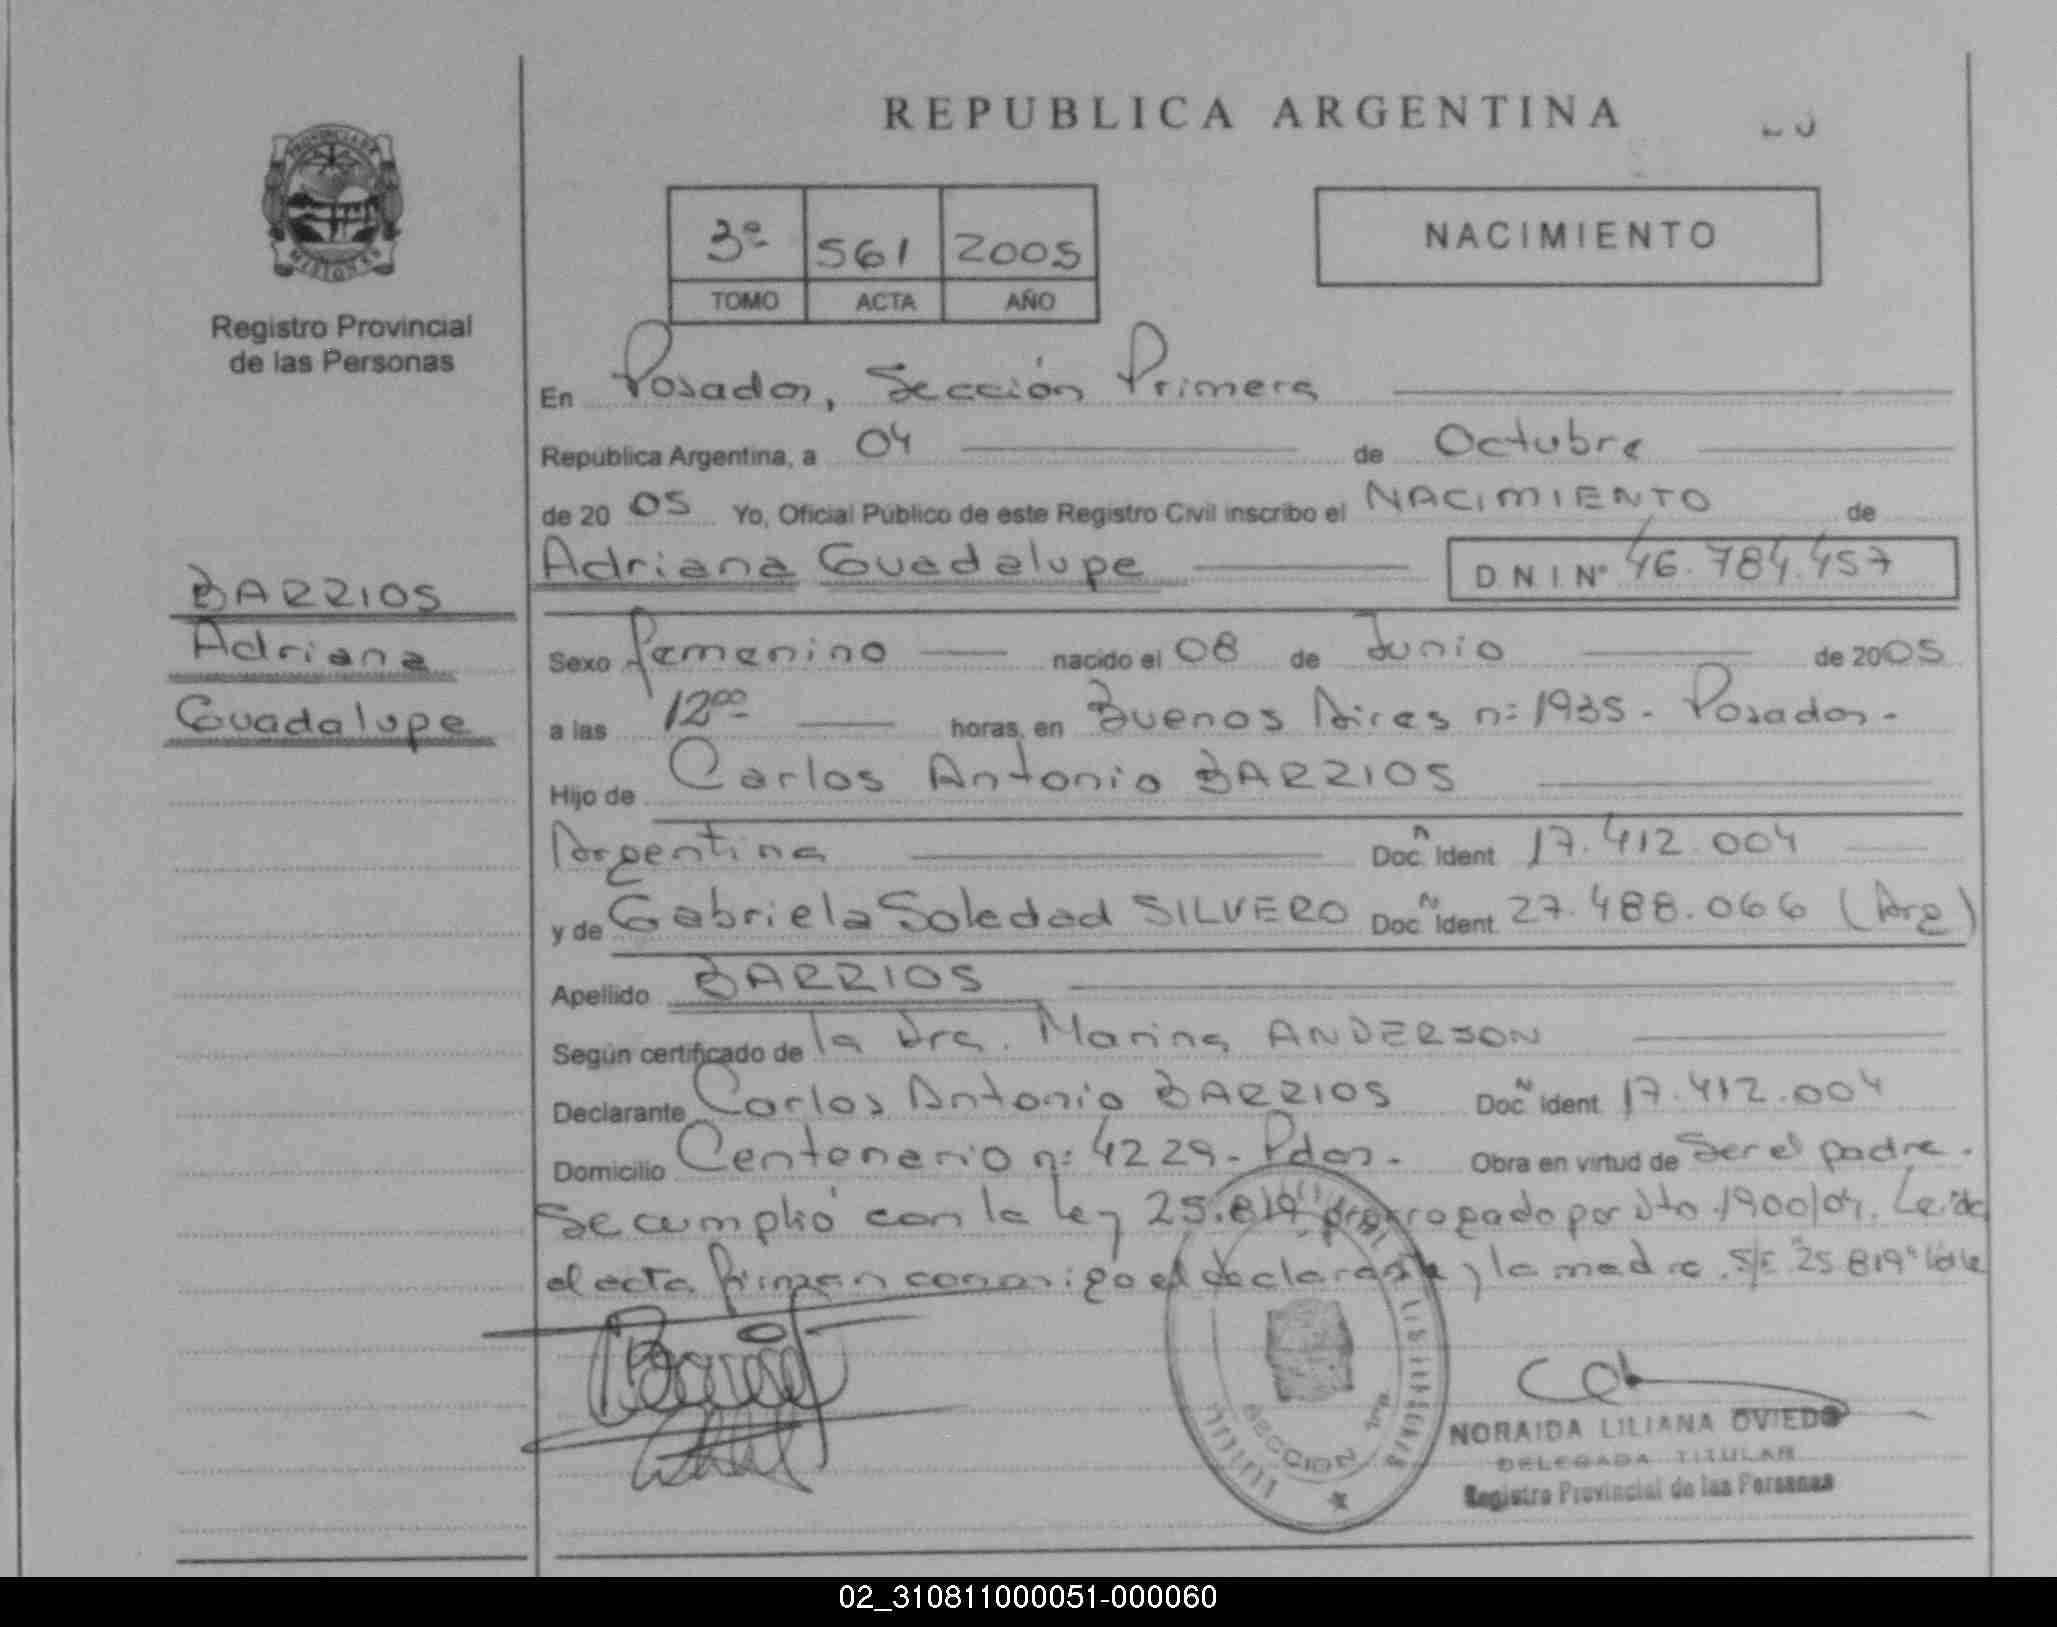 REPUBLICA ARGENTINA
PROVINCIA DE
MISIONES
Registro Provincial
de las Personas
3º 561 2005
TOMO ACTA AÑO
NACIMIENTO
En Posadas, Sección Primera
República Argentina, a 04 de Octubre
de 2005 Yo, Oficial Público de este Registro Civil inscribo el NACIMIENTO de
Adriana Guadalupe D N I Nº 46.784.457
BARRIOS
Adriana
Guadalupe
Sexo femenino nacido el 08 de Junio de 2005
a las 12⁰⁰ horas, en Buenos Aires nº 1935 - Posadas -
Hijo de Carlos Antonio BARRIOS
Argentina Doc. Ident. 17.412.004
y de Gabriela Soledad SILVERO Doc. Ident. 27.488.066 (Arg)
Apellido BARRIOS
Según certificado de la Dra. Marina ANDERSON
Declarante Carlos Antonio BARRIOS Doc. Ident. 17.412.004
Domicilio Centenario nº 4229 - Pdas - Obra en virtud de Ser el padre.
Se cumplió con la ley 25.819 prorrogado por Dto. 1900/04. Leida
el acta firman conmigo el declarante y la madre. S/E "25 819" Vale
SECCION
NORAIDA LILIANA OVIEDO
DELEGADA TITULAR
Registro Provincial de las Personas
02_310811000051-000060